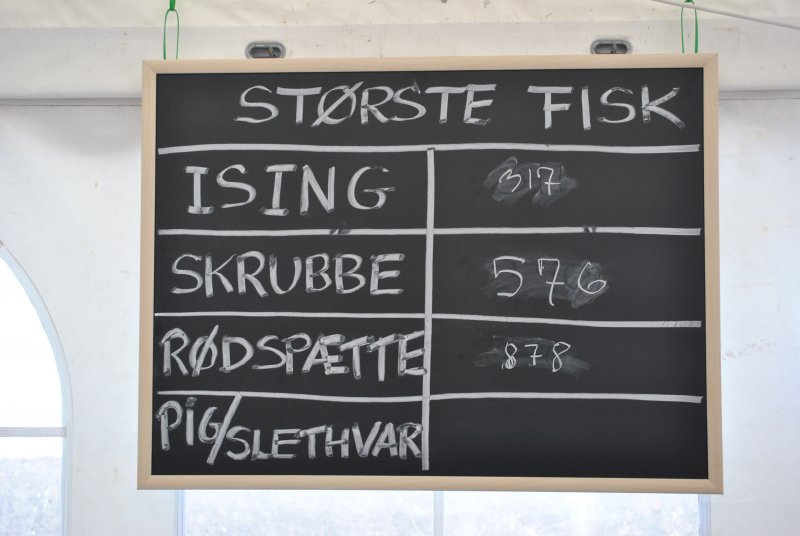 STØRSTE FISK
ISING 317
SKRUBBE 576
RØDSPÆTTE 878
PIG/SLETHVAR